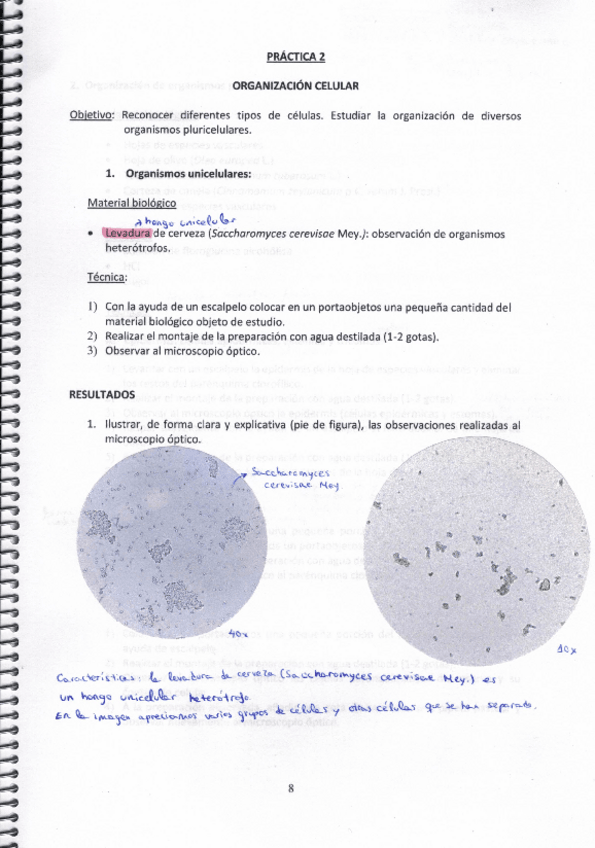 PRÁCTICA 2
ORGANIZACIÓN CELULAR
Objetivo: Reconocer diferentes tipos de células. Estudiar la organización de diversos
organismos pluricelulares.
1. Organismos unicelulares:
Material biológico
hongo unicelular
• Levadura de cerveza (Saccharomyces cerevisae Mey.): observación de organismos
heterótrofos.
Técnica:
1) Con la ayuda de un escalpelo colocar en un portaobjetos una pequeña cantidad del
material biológico objeto de estudio.
2) Realizar el montaje de la preparación con agua destilada (1-2 gotas).
3) Observar al microscopio óptico.
RESULTADOS
1. Ilustrar, de forma clara y explicativa (pie de figura), las observaciones realizadas al
microscopio óptico.
Saccharomyces
cerevisae Mey.
40x
10x
Características: la levadura de cerveza (Saccharomyces cerevisae Mey.) es
un hongo unicelular heterótrofo.
En la imagen apreciamos varios grupos de células y otras células que se han separado.
8